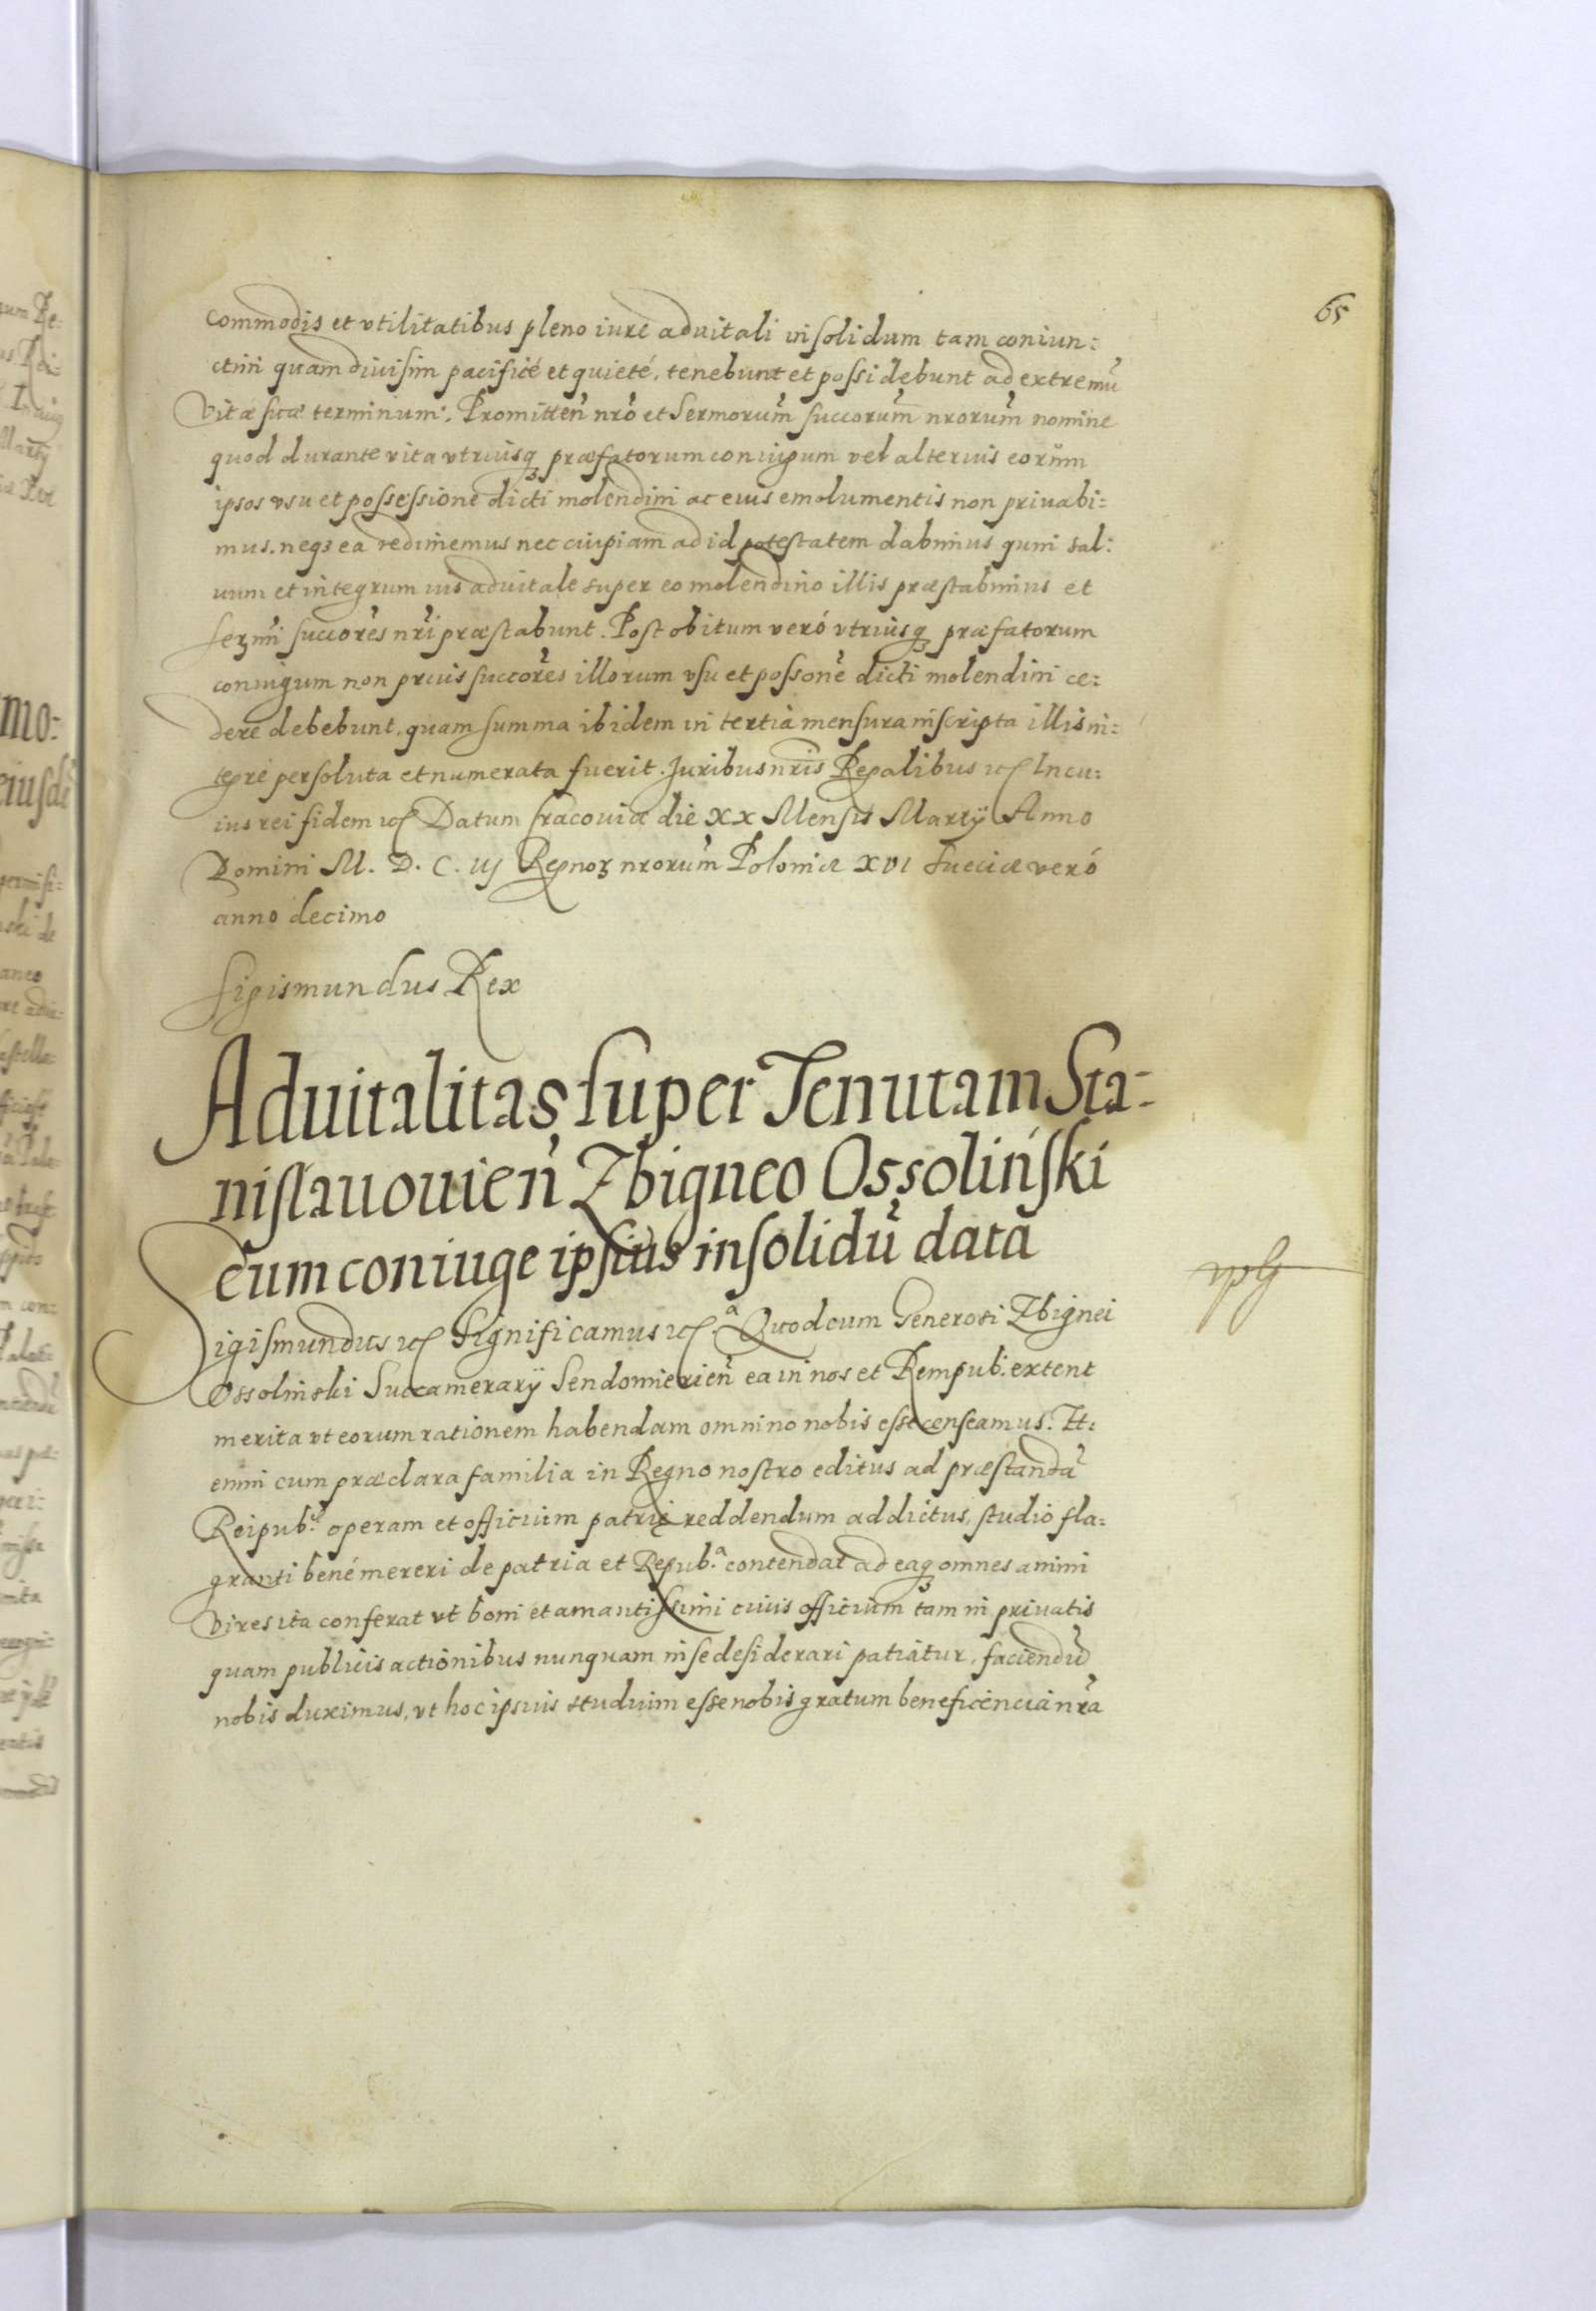 65
commodis et vtilitatibus pleno iure aduitali in solidum tam coniun:
ctim quam diuisim pacificé et quieté, tenebunt et possidebunt ad extremũ
vitæ suæ terminum. Promitteñ nrõ et Sermorum̃ succorum̃ nrorum̃ nomine
quod durante vita vtriusq præfatorum coniugum vel alterius eorum
ipsos vsu et possessione dicti molendini ac eius emolumentis non priuabi:
mus. neq3 ea redimemus nec cuipiam ad id potestatem dabimus quin sal:
uum et integrum ius aduitale super eo molendino illis præstabimus et
Serm̃i succorẽs nrĩ præstabunt. Post obitum veró vtriusq præfatorum
coniugum non prius succorẽs illorum vsu et possonẽ dicti molendini ce:
dere debebunt, quam summa ibidem in tertia mensura inscripta illis in:
tegré persoluta et numerata fuerit. Juribus nris Regalibus etc Incu:
ius rei fidem etc Datum Cracouiæ die XX Mensis Martÿ Anno
Domini M. D. C. iij Regnoꝝ nrorum̃ Poloniæ XVI Sueciæ veró
anno decimo
Sigismundus Rex
Aduitalitas super Tenutam Sta-
nislauouieñ Zbigneo Ossoliński
cum coniuge ipsius in solidũ data
Sigismundus etc Significamus etc.ª Quod cum Generosi Zbignei
Ossolinski Succamerarÿ Sendomirieñ ea in nos et Rempub: extent
merita vt eorum rationem habendam omnino nobis esse censeamus. Et:
enim cum præclara familia in Regno nostro editus ad præstandã
Reipub: operam et officium patriæ reddendum addictus, studio fla:
granti bené mereri de patria et Repub.ª contendat ad eaq omnes animi
vires ita conferat vt boni et amantissimi ciuis officium tam in priuatis
quam publicis actionibus nunquam in se desiderari patiatur, faciendũ
nobis duximus, vt hoc ipsius studium esse nobis gratum beneficencia nrã